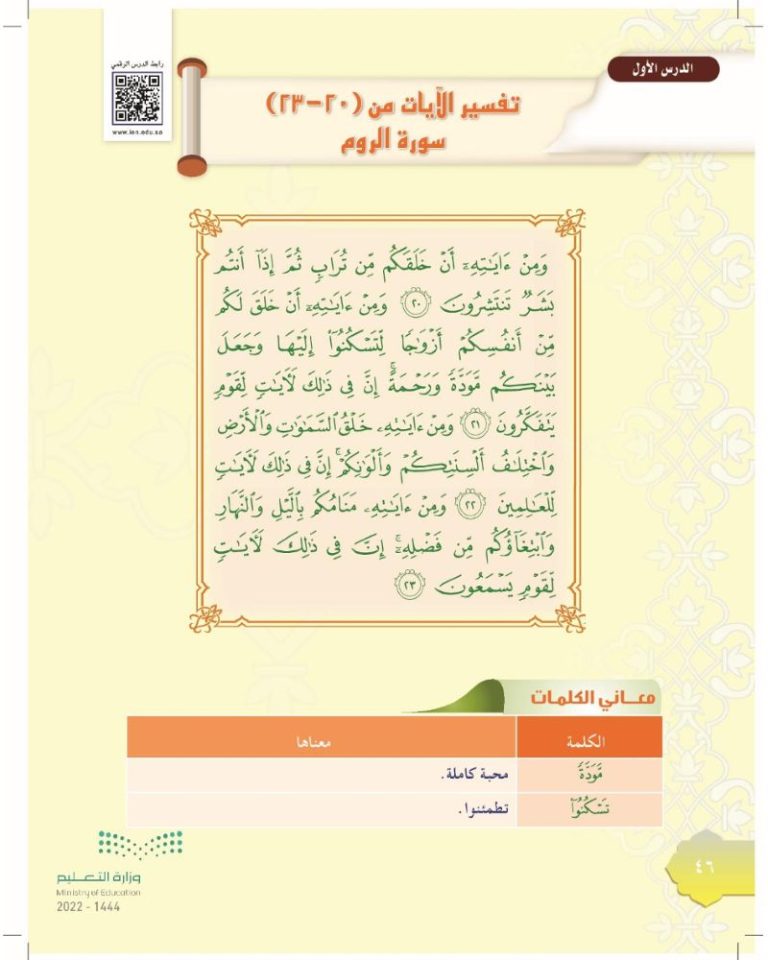 رابط الدرس الرقمي
www.ien.edu.sa
الدرس الأول
تفسير الآيات من (٢٠-٢٣)
سورة الروم
وَمِنْ ءَايَٰتِهِۦٓ أَنْ خَلَقَكُم مِّن تُرَابٍ ثُمَّ إِذَآ أَنتُم
بَشَرٌ تَنتَشِرُونَ ٢٠ وَمِنْ ءَايَٰتِهِۦٓ أَنْ خَلَقَ لَكُم
مِّنْ أَنفُسِكُمْ أَزْوَٰجًا لِّتَسْكُنُوٓا۟ إِلَيْهَا وَجَعَلَ
بَيْنَكُم مَّوَدَّةً وَرَحْمَةً ۚ إِنَّ فِى ذَٰلِكَ لَءَايَٰتٍ لِّقَوْمٍ
يَتَفَكَّرُونَ ٢١ وَمِنْ ءَايَٰتِهِۦ خَلْقُ ٱلسَّمَٰوَٰتِ وَٱلْأَرْضِ
وَٱخْتِلَٰفُ أَلْسِنَتِكُمْ وَأَلْوَٰنِكُمْ ۚ إِنَّ فِى ذَٰلِكَ لَءَايَٰتٍ
لِّلْعَٰلِمِينَ ٢٢ وَمِنْ ءَايَٰتِهِۦ مَنَامُكُم بِٱلَّيْلِ وَٱلنَّهَارِ
وَٱبْتِغَآؤُكُم مِّن فَضْلِهِۦٓ ۚ إِنَّ فِى ذَٰلِكَ لَءَايَٰتٍ
لِّقَوْمٍ يَسْمَعُونَ ٢٣
معاني الكلمات
الكلمة معناها
مَّوَدَّةً محبة كاملة.
تَسْكُنُوٓا۟ تطمئنوا.
وزارة التعليم
Ministry of Education
2022 - 1444
٤٦